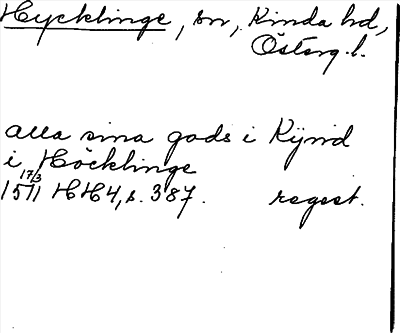 Hycklinge, sn, Kinda hd,
Österg. l.
alla sina gods i Kijnd
i Höcklinge
17/3
1511 HH4, s. 387. regest.